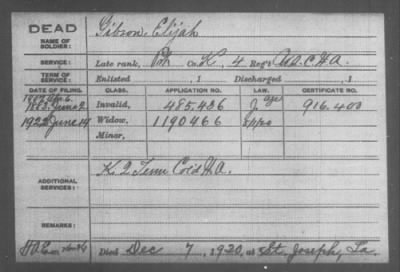 DEAD
NAME OF SOLDIER: Gibson, Elijah
SERVICE: Late rank, Pvt Co. K, 4 Reg't U.S.C.H.A.
TERM OF SERVICE: Enlisted , 1 Discharged , 1
DATE OF FILING. CLASS. APPLICATION NO. LAW. CERTIFICATE NO.
1883 June 2 Invalid, 485.436 J. age 916.400
1922 June 14 Widow, 1190466
Minor,
ADDITIONAL SERVICES: K 2 Tenn Cold H.A.
REMARKS:
Died Dec 7, 1920, at St. Joseph, La.